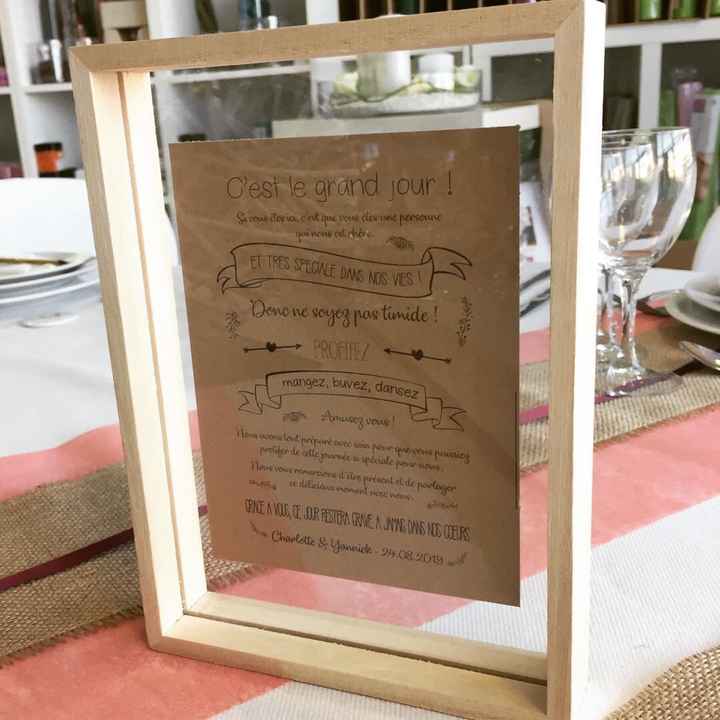 C'est le grand jour !
Si vous êtes ici, c'est que vous êtes une personne
qui nous est chère...
ET TRES SPECIALE DANS NOS VIES !
Donc ne soyez pas timide !
PROFITEZ
mangez, buvez, dansez
Amusez vous !
Nous avons tout préparé avec soin pour que vous puissiez
profiter de cette journée si spéciale pour nous.
Nous vous remercions d'être présent et de partager
ce délicieux moment avec nous.
GRACE A VOUS, CE JOUR RESTERA GRAVE A JAMAIS DANS NOS COEURS
Charlotte & Yannick - 24.08.2019